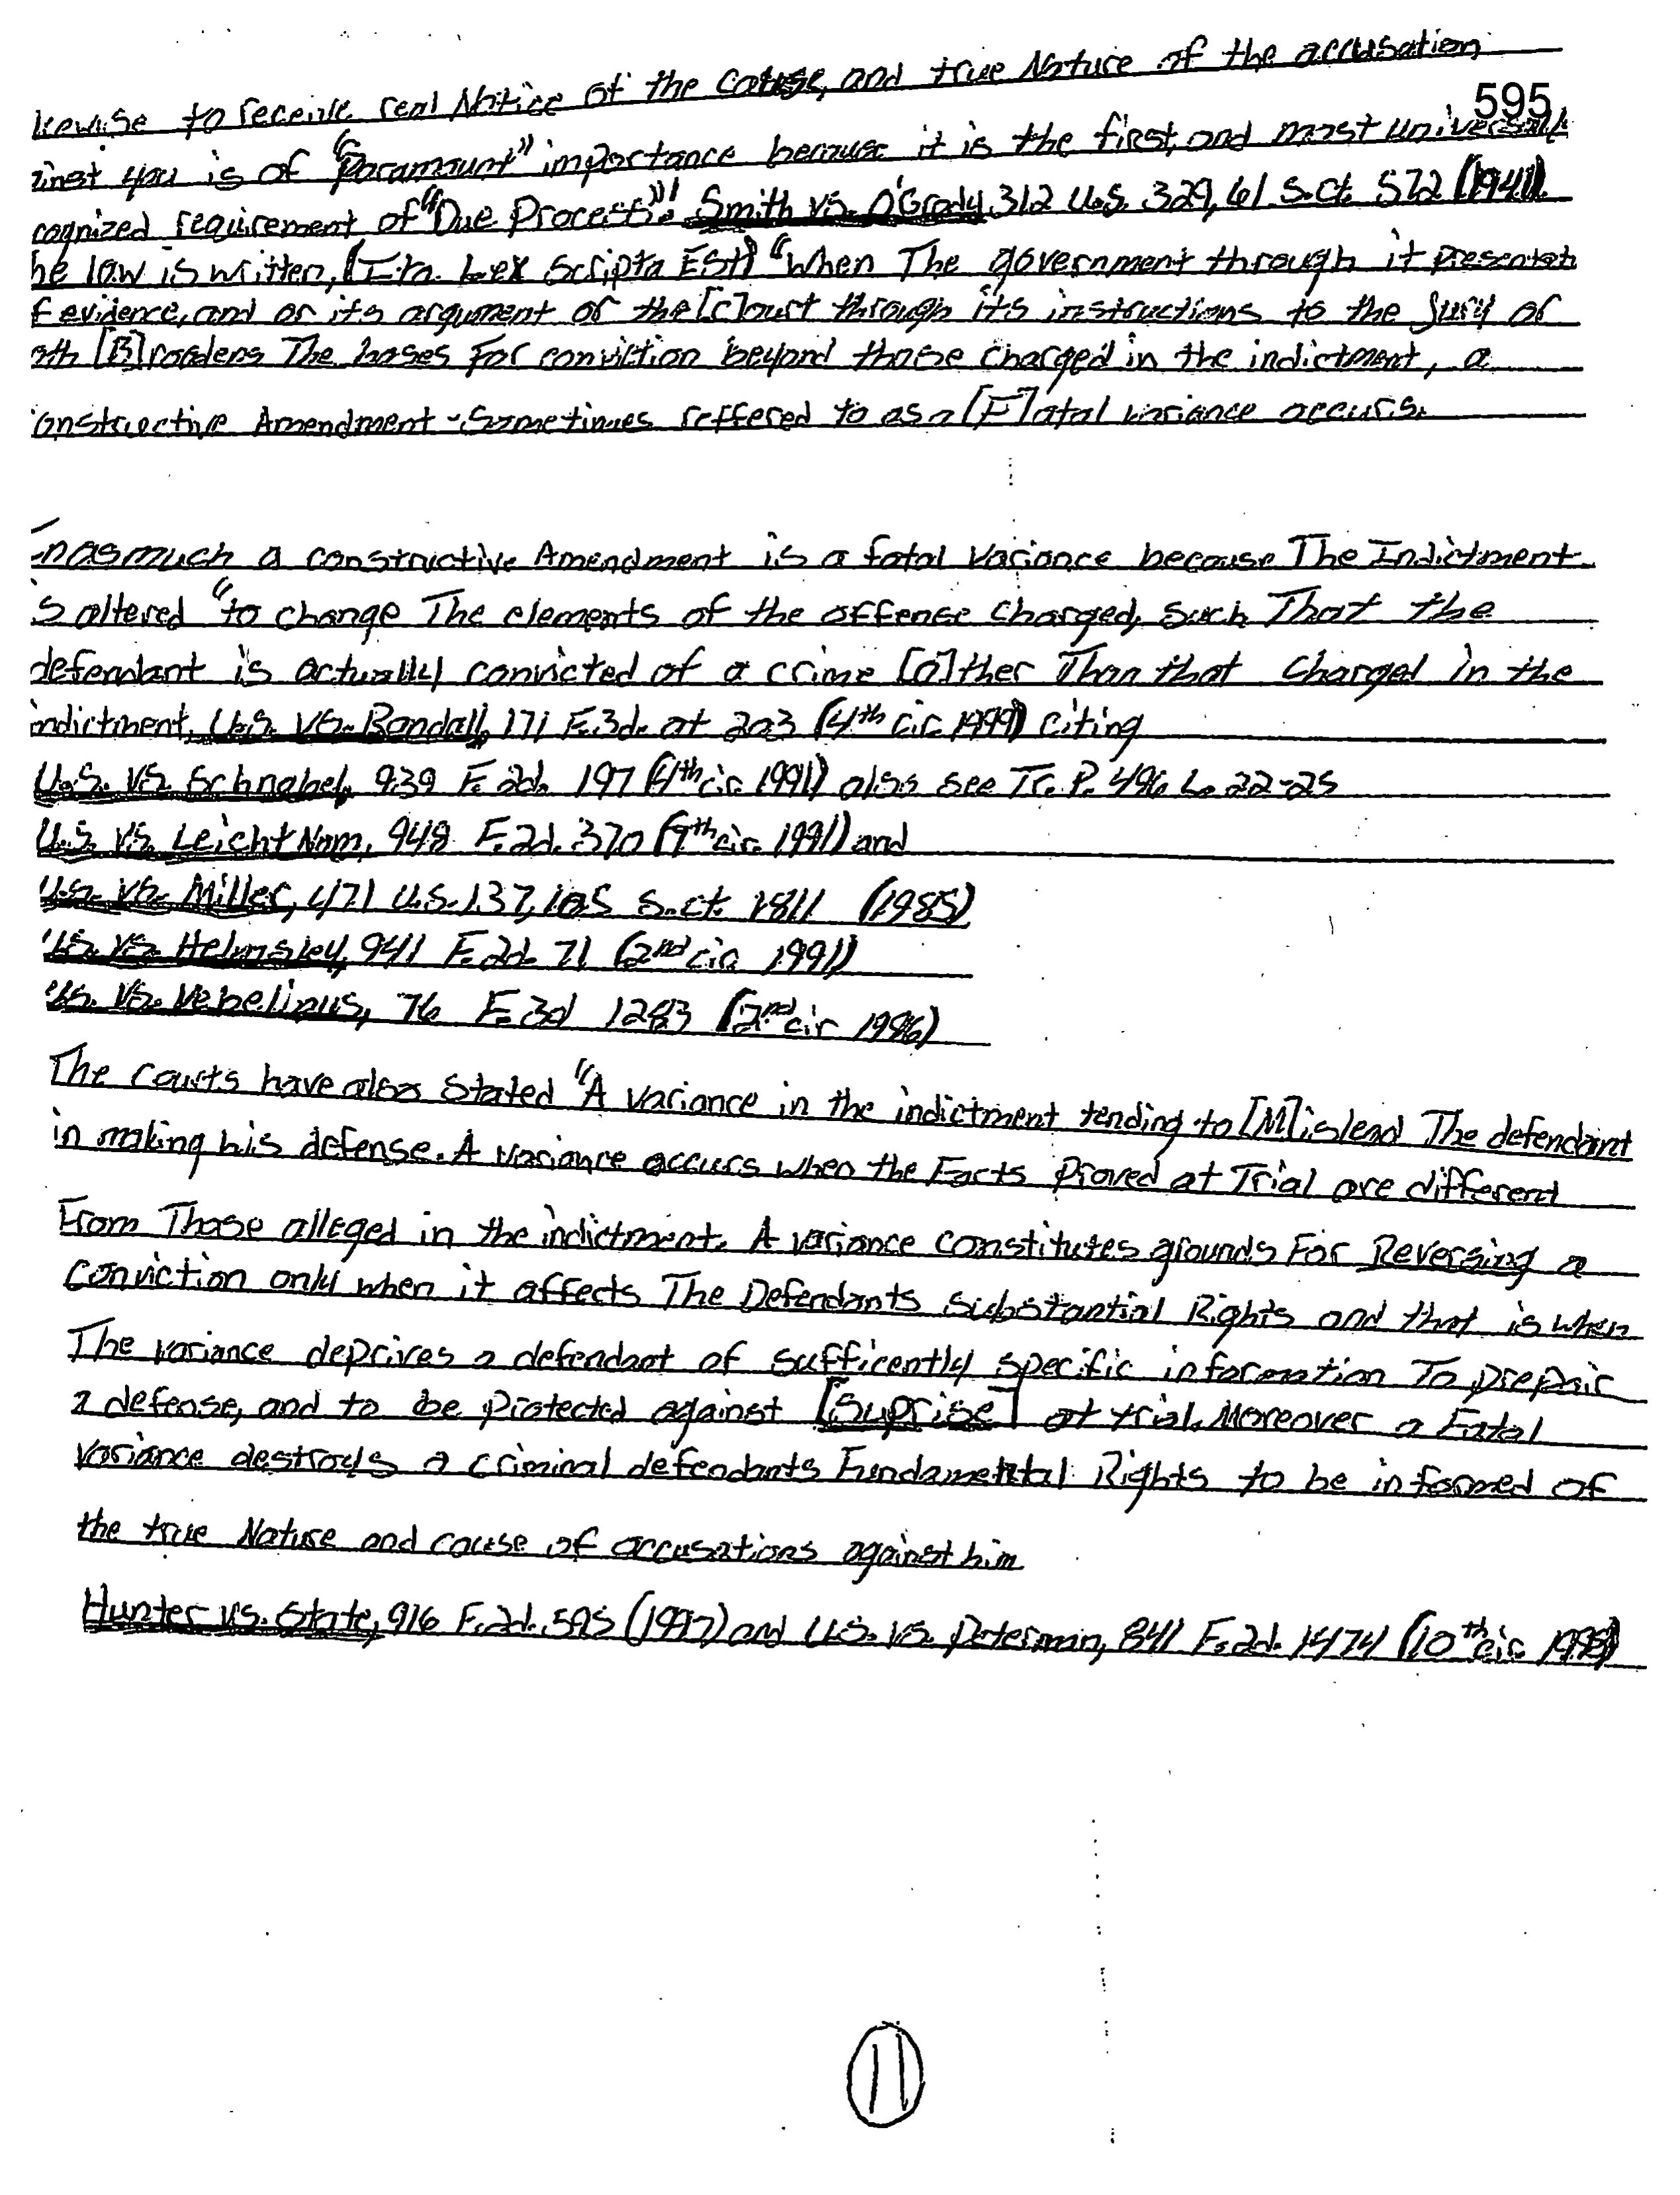 kewise to receive real Notice of the cause, and true Nature of the accusation
595
inst you is of "Paramount" importance because it is the first, and most universally
cognized requirement of "Due Process"! Smith vs. O'Grady, 312 U.S. 329, 61 S.Ct. 572 (1941).
he law is written, (Ita Lex Scripta Est) "When The government through it presentati
f evidence, and or its argument or the [C]ourt through its instructions to the Jury or
oth [B]roadens The bases For conviction beyond those charged in the indictment, a
onstructive Amendment - Sometimes reffered to as a [F]atal variance occurs.
Inasmuch a constructive Amendment is a fatal Variance because The Indictment
is altered "to change The elements of the offense charged, such That the
defendant is actually convicted of a crime [O]ther Than that charged in the
indictment, U.S. vs. Randall, 171 F.3d. at 203 (4th cir. 1999) citing
U.S. vs. Schnabel, 939 F.2d. 197 (4th cir. 1991) also see Tr. P. 496 L. 22-25
U.S. vs. LeichtNam, 948 F.2d. 370 (7th cir. 1991) and
U.S. vs. Miller, 471 U.S. 137, 105 S.ct. 1811 (1985)
U.S. vs. Helmsley, 941 F.2d. 71 (2nd cir. 1991)
U.S. vs. Vebelinus, 76 F.3d 1283 (2nd cir 1996)
The courts have also Stated "A variance in the indictment tending to [M]islead The defendant
in making his defense. A variance occurs when the Facts Proved at Trial are different
From Those alleged in the indictment. A variance constitutes grounds For Reversing a
Conviction only when it affects The Defendants Substantial Rights and that is when
The variance deprives a defendant of sufficently specific information To prepair
a defense, and to be protected against [Suprise] at trial. Moreover a Fatal
Variance destroys a criminal defendants Fundamental Rights to be informed of
the true Nature and cause of accusations against him
Hunter vs. State, 916 F.2d. 595 (1997) and U.S. vs. Peterman, 841 F.2d. 1474 (10th cir.
11